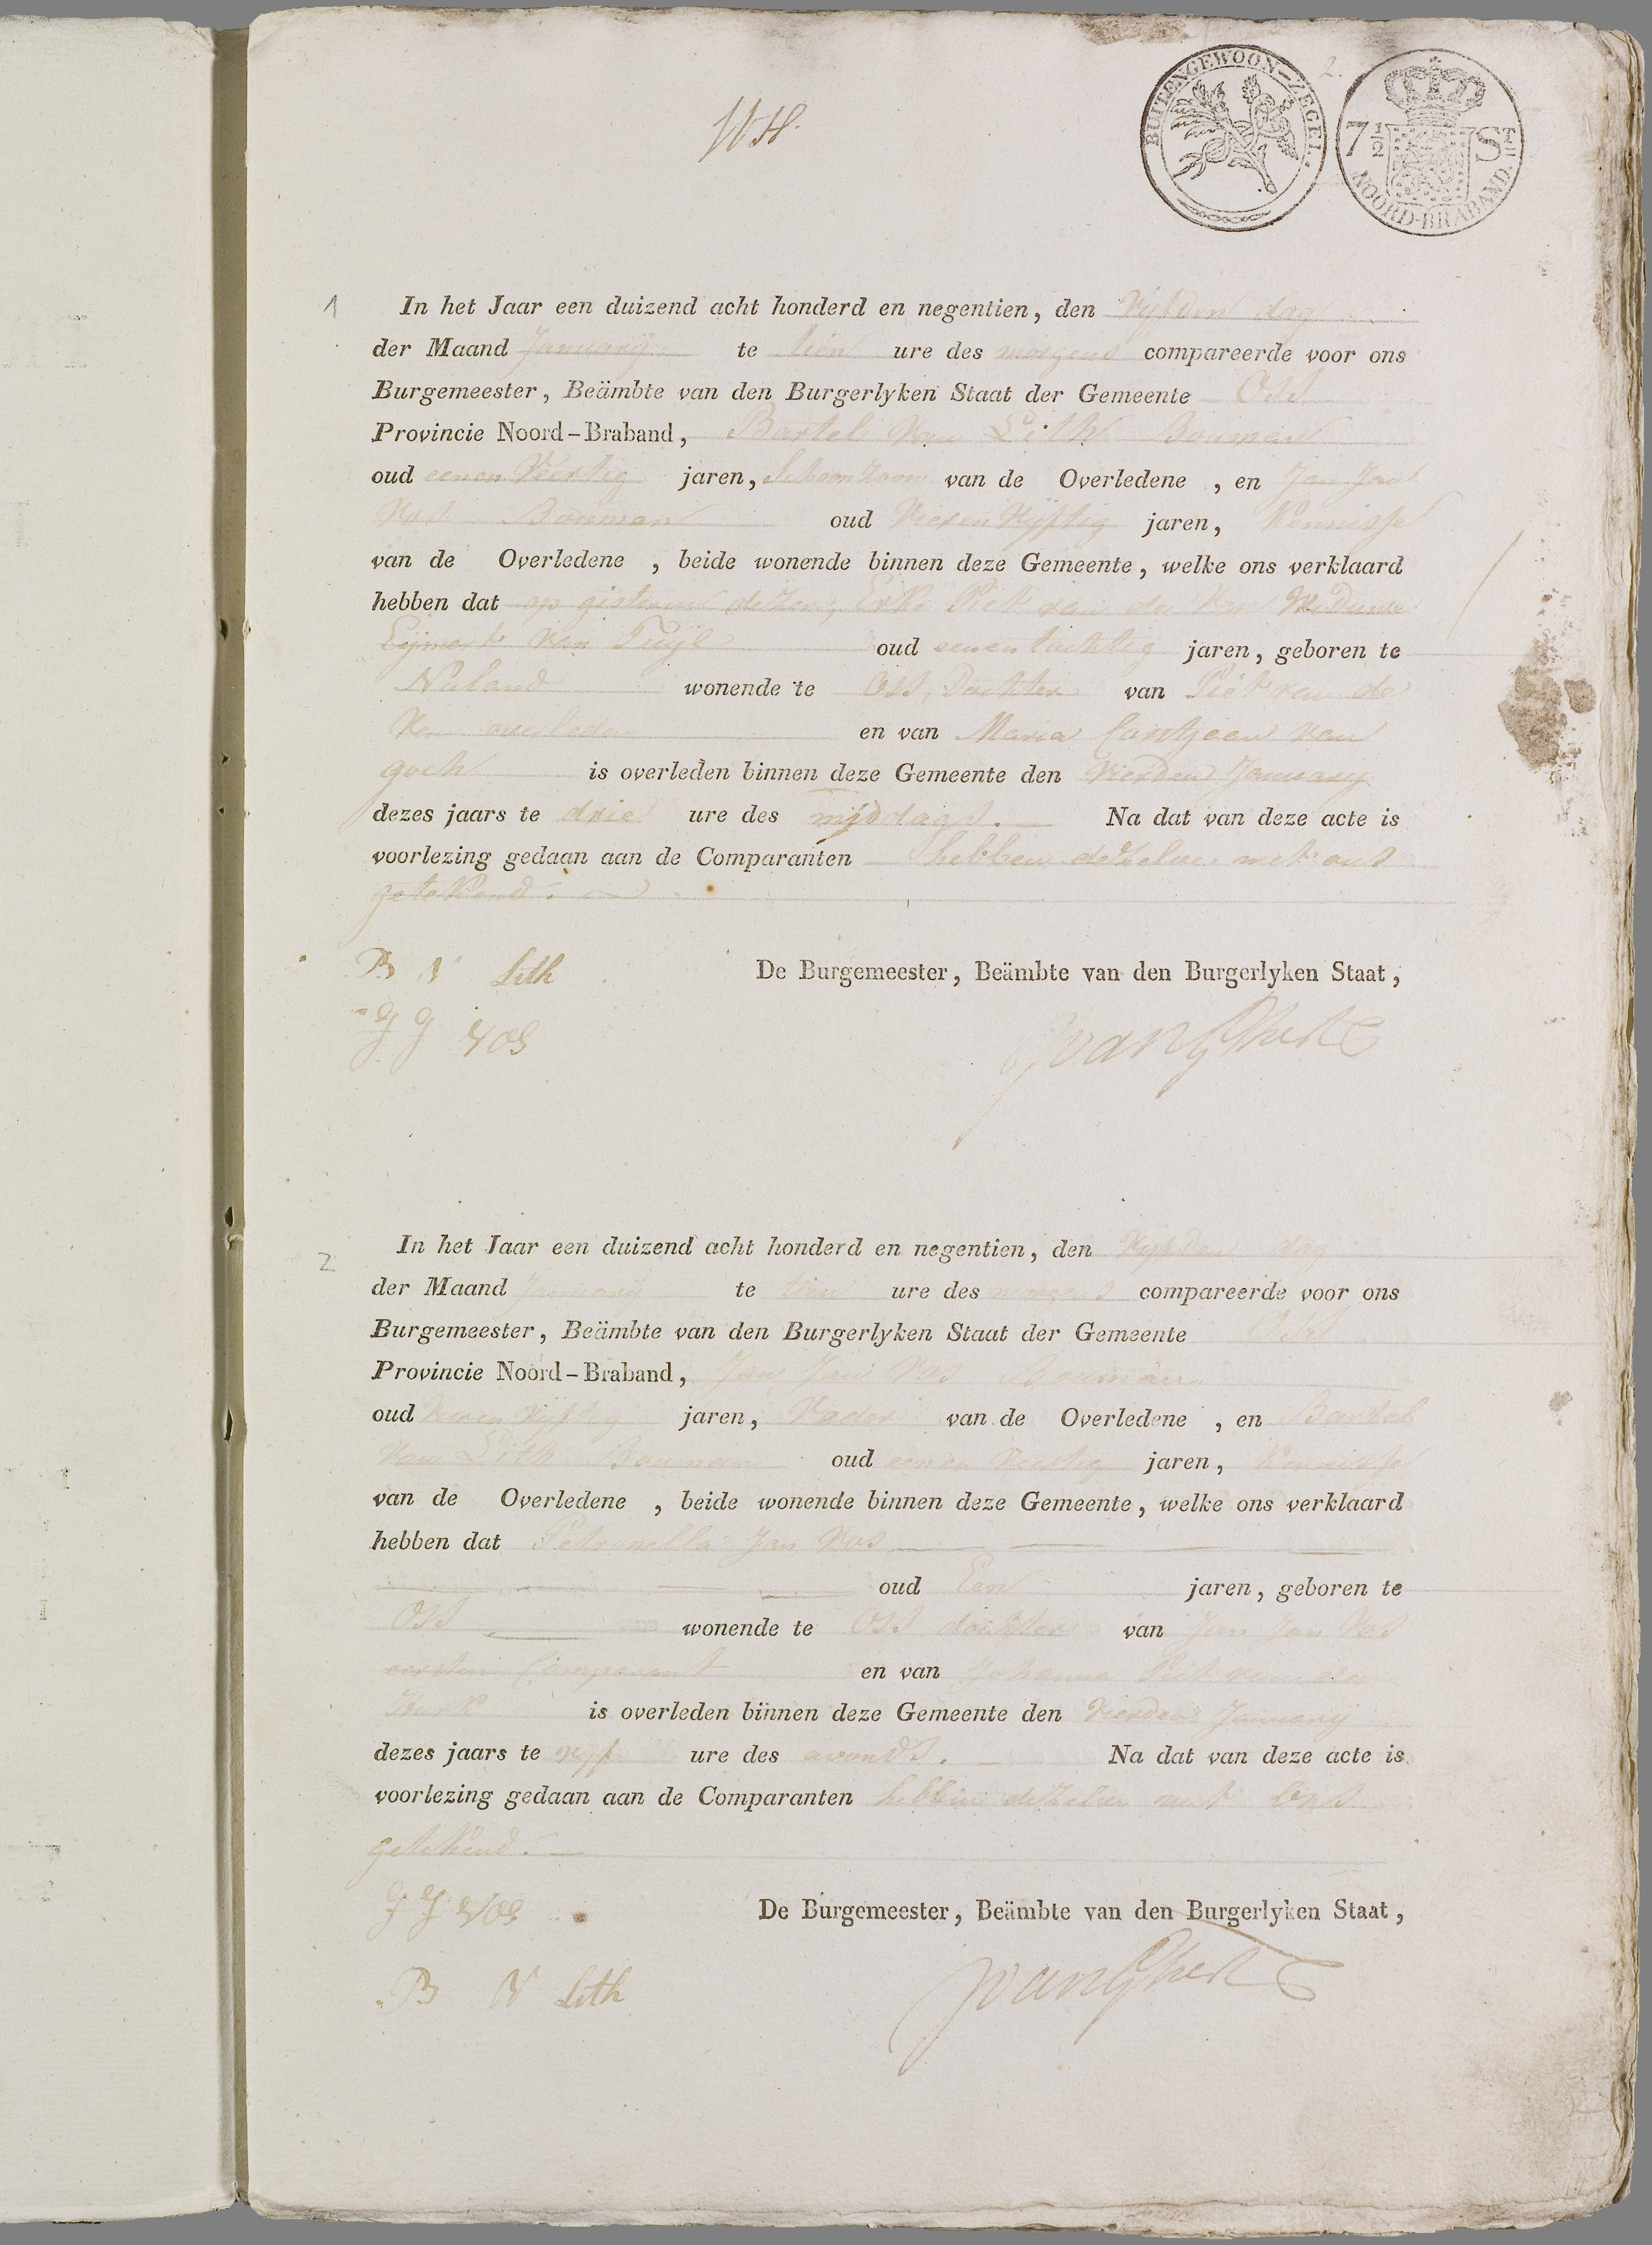 BUITENGEWOON-ZEGEL.
2.
7½ STr
NOORD-BRABAND.
WH.
1
In het Jaar een duizend acht honderd en negentien, den Vijfden dag
der Maand January te tien ure des morgens compareerde voor ons
Burgemeester, Beämbte van den Burgerlyken Staat der Gemeente Oss
Provincie Noord-Braband, Bartel van Lith Bouman
oud eenen Veertig jaren, Schoonzoon van de Overledene , en Jan Jan
Vos Bouman oud Vieren Vijftig jaren, Kennisse
van de Overledene , beide wonende binnen deze Gemeente, welke ons verklaard
hebben dat op gisteren dezer, Erke Piet van de Ven Weduwe
Eijmert van Tuijl oud eenen tachtig jaren, geboren te
Nuland wonende te Oss, Dochter van Piet van de
Ven overleden en van Maria van
goch is overleden binnen deze Gemeente den Vierden January
dezes jaars te drie ure des middags. Na dat van deze acte is
voorlezing gedaan aan de Comparanten hebben dezelve met ons
getekend.
B V Lith
De Burgemeester, Beämbte van den Burgerlyken Staat,
J J Vos
JvanGhert
2
In het Jaar een duizend acht honderd en negentien, den Vijfden dag
der Maand January te tien ure des morgens compareerde voor ons
Burgemeester, Beämbte van den Burgerlyken Staat der Gemeente Oss
Provincie Noord-Braband, Jan Jan Vos Bouman
oud Vieren Vijftig jaren, Vader van de Overledene , en Bartel
van Lith Bouman oud eenen Veertig jaren, Kennisse
van de Overledene , beide wonende binnen deze Gemeente, welke ons verklaard
hebben dat Petronella Jan Vos
oud Een jaren, geboren te
Oss wonende te Oss dochter van Jan Jan Vos
eersten Comparant en van Johanna Piet van den
Hurk is overleden binnen deze Gemeente den Vierden January
dezes jaars te vijf ure des avonds. Na dat van deze acte is
voorlezing gedaan aan de Comparanten hebben dezelve met ons
getekend.
J J Vos
De Burgemeester, Beämbte van den Burgerlyken Staat,
B V Lith
JvanGhert